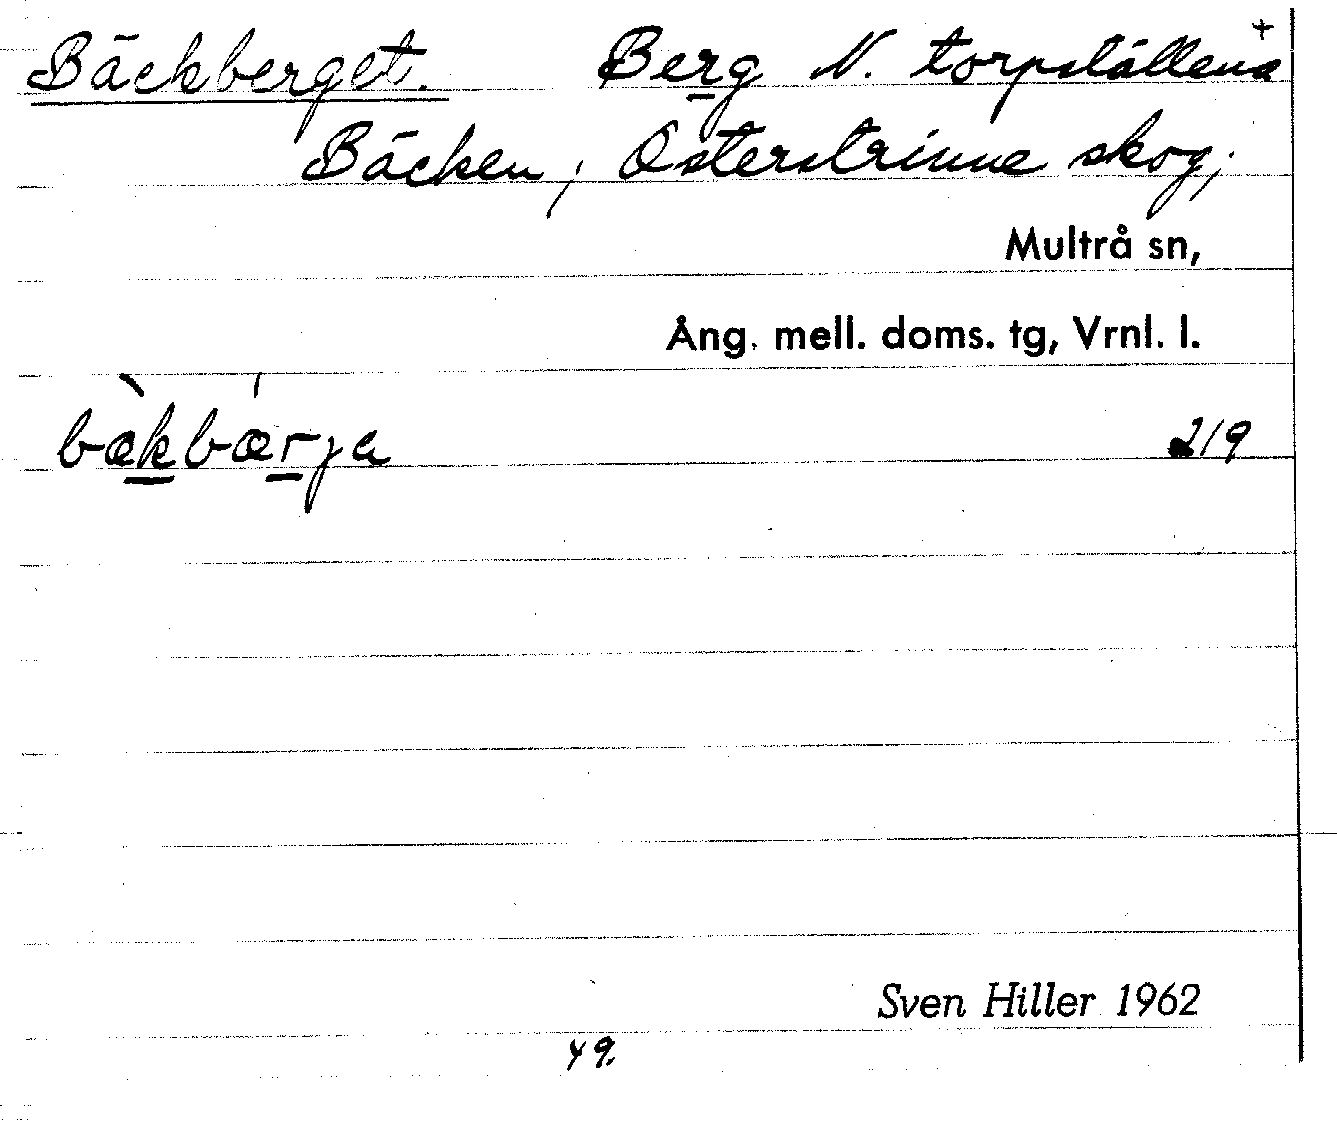 Bäckberget. Berg N. torpställena +
Bäcken, Österstrinne skog,
Multrå sn,
Ång. mell. doms. tg, Vrnl. l.
bæ̀kbǽrja 219
Sven Hiller 1962
49.